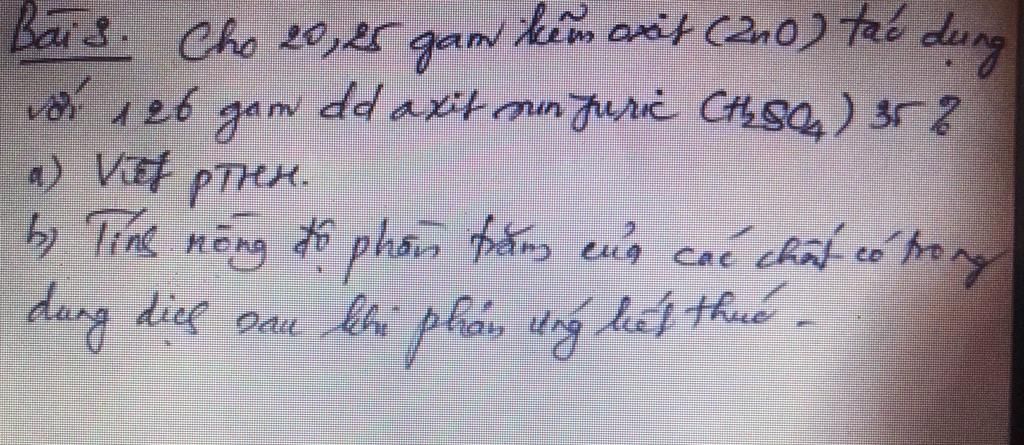 Bài 8. Cho 20,25 gam kẽm oxit (ZnO) tác dụng
với 126 gam dd axit sunfuric (H₂SO₄) 35 %
a) Viết PTHH.
b) Tính nồng độ phần trăm của các chất có trong
dung dịch sau khi phản ứng kết thúc.